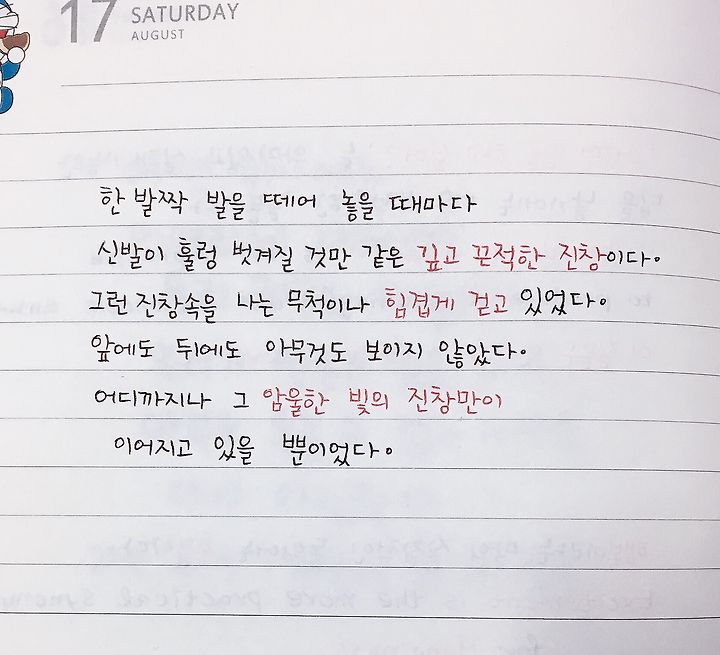 17 SATURDAY
AUGUST
한 발짝 발을 떼어 놓을 때마다
신발이 훌렁 벗겨질 것만 같은 깊고 끈적한 진창이다.
그런 진창속을 나는 무척이나 힘겹게 걷고 있었다.
앞에도 뒤에도 아무것도 보이지 않았다.
어디까지나 그 암울한 빛의 진창만이
이어지고 있을 뿐이었다.